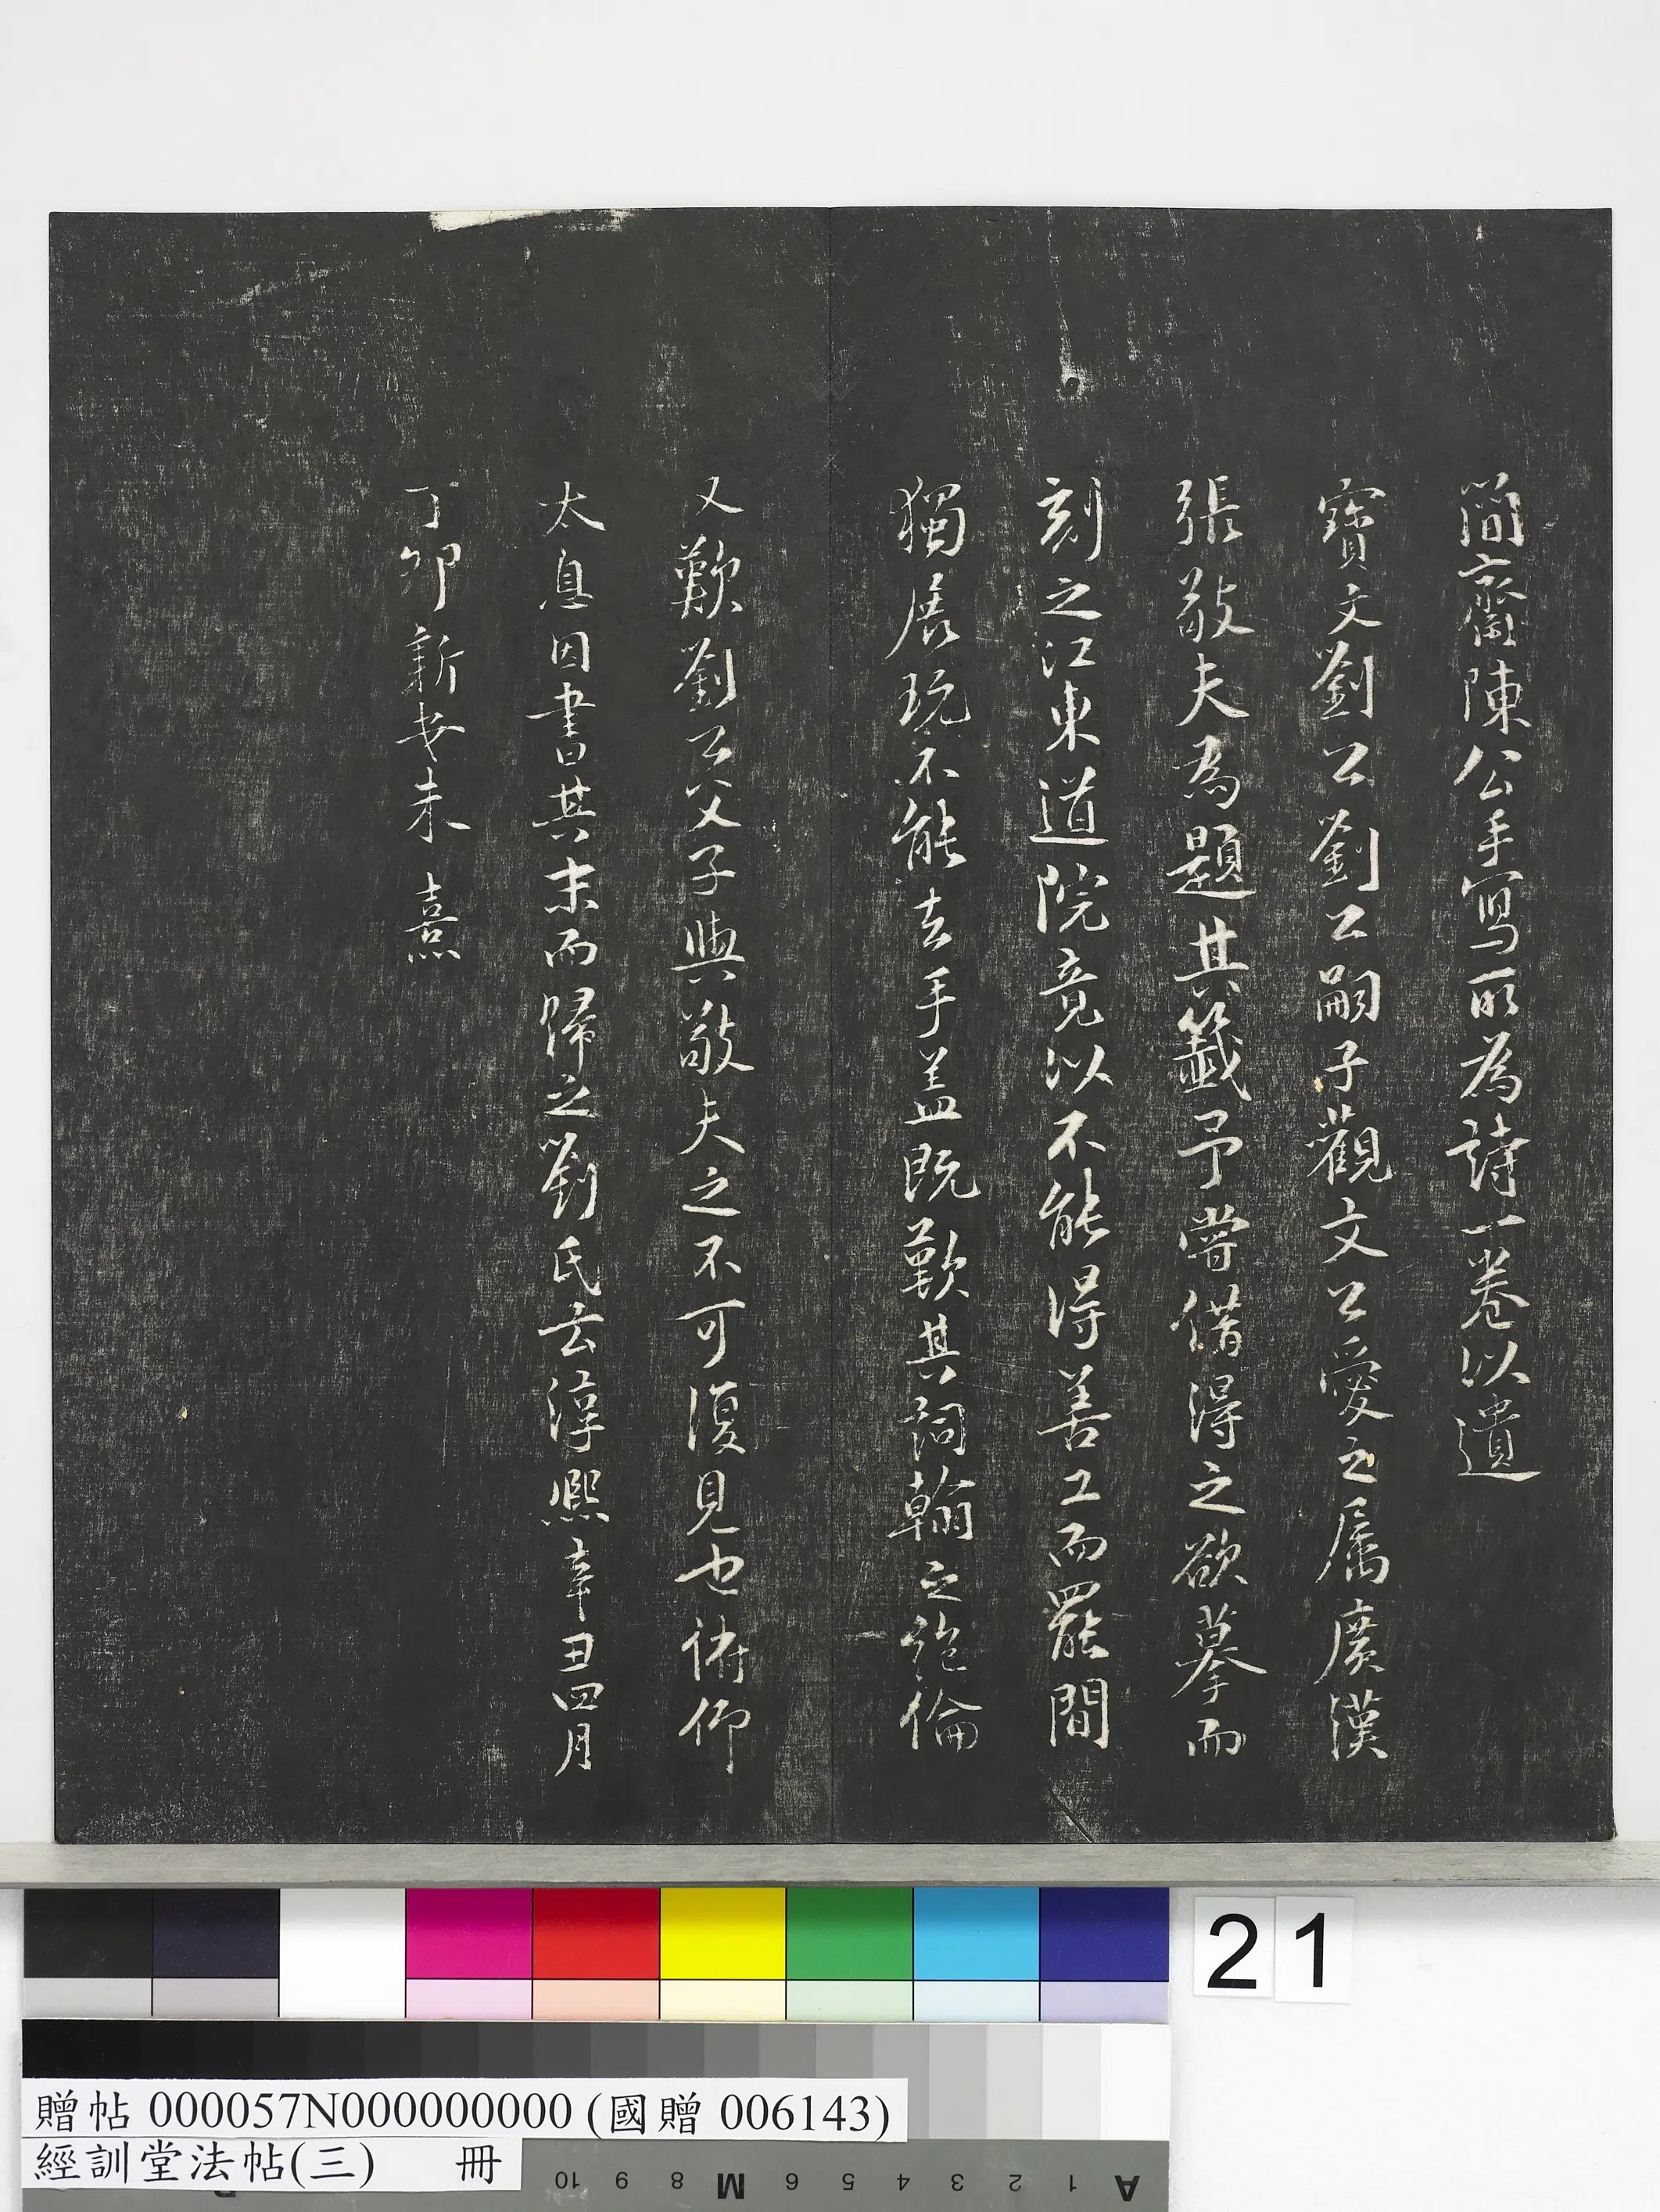 簡齋陳公手寫所為詩一卷以遺
寶文劉公劉公嗣子觀文公愛之屬廣漢
張敬夫為題其籤予嘗借得之欲摹而
刻之江東道院竟以不能得善工而罷間
獨展玩不能去手盖既歎其詞翰之絶倫
又歎劉公父子與敬夫之不可復見也俯仰
太息因書其末而歸之劉氏云淳熙辛丑四月
丁卯新安朱熹
21
贈帖 000057N000000000 (國贈 006143)
經訓堂法帖(三) 冊
10 9 8 M 6 5 4 3 2 1 A